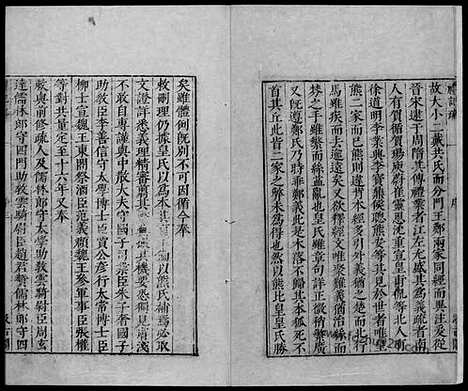 故大小二戴共氏而分門王鄭兩家同經而異注爰從
晉宋逮于周隋其傳禮業者江左尤盛其爲義疏者南
人有賀循賀瑒庾蔚崔靈恩沈重宣皇甫侃等北人有
徐道明李業興李寶鼎侯聰熊安等其見於世者唯皇
熊二家而已熊則違背本經多引外義猶之楚而北行
馬雖疾而去逾遠矣又欲釋經文唯聚難義猶治絲而
棼之手雖繁而絲益亂也皇氏雖章句詳正微稍繁廣
又旣遵鄭氏乃時乖鄭義此是木落不歸其本狐死不
首其丘此皆二家之弊未爲得也然以熊比皇皇氏勝
矣雖體例旣別不可因循今奉
敕刪理仍據皇氏以爲本其有不備以熊氏補焉必取
文證詳悉義理精審翦其繁蕪撮其機要恐獨見膚淺
不敢自專謹與中散大夫守國子司業臣朱子奢國子
助敎臣李善信守太學博士臣賈公彥行太常博士臣
柳士宣魏王東閤祭酒臣范義頵魏王參軍事臣張權
等對共量定至十六年又奉
敕與前修疏人及儒林郎守太學助敎雲騎尉臣周玄
達儒林郎守四門助敎雲騎尉臣趙君贊儒林郎守四